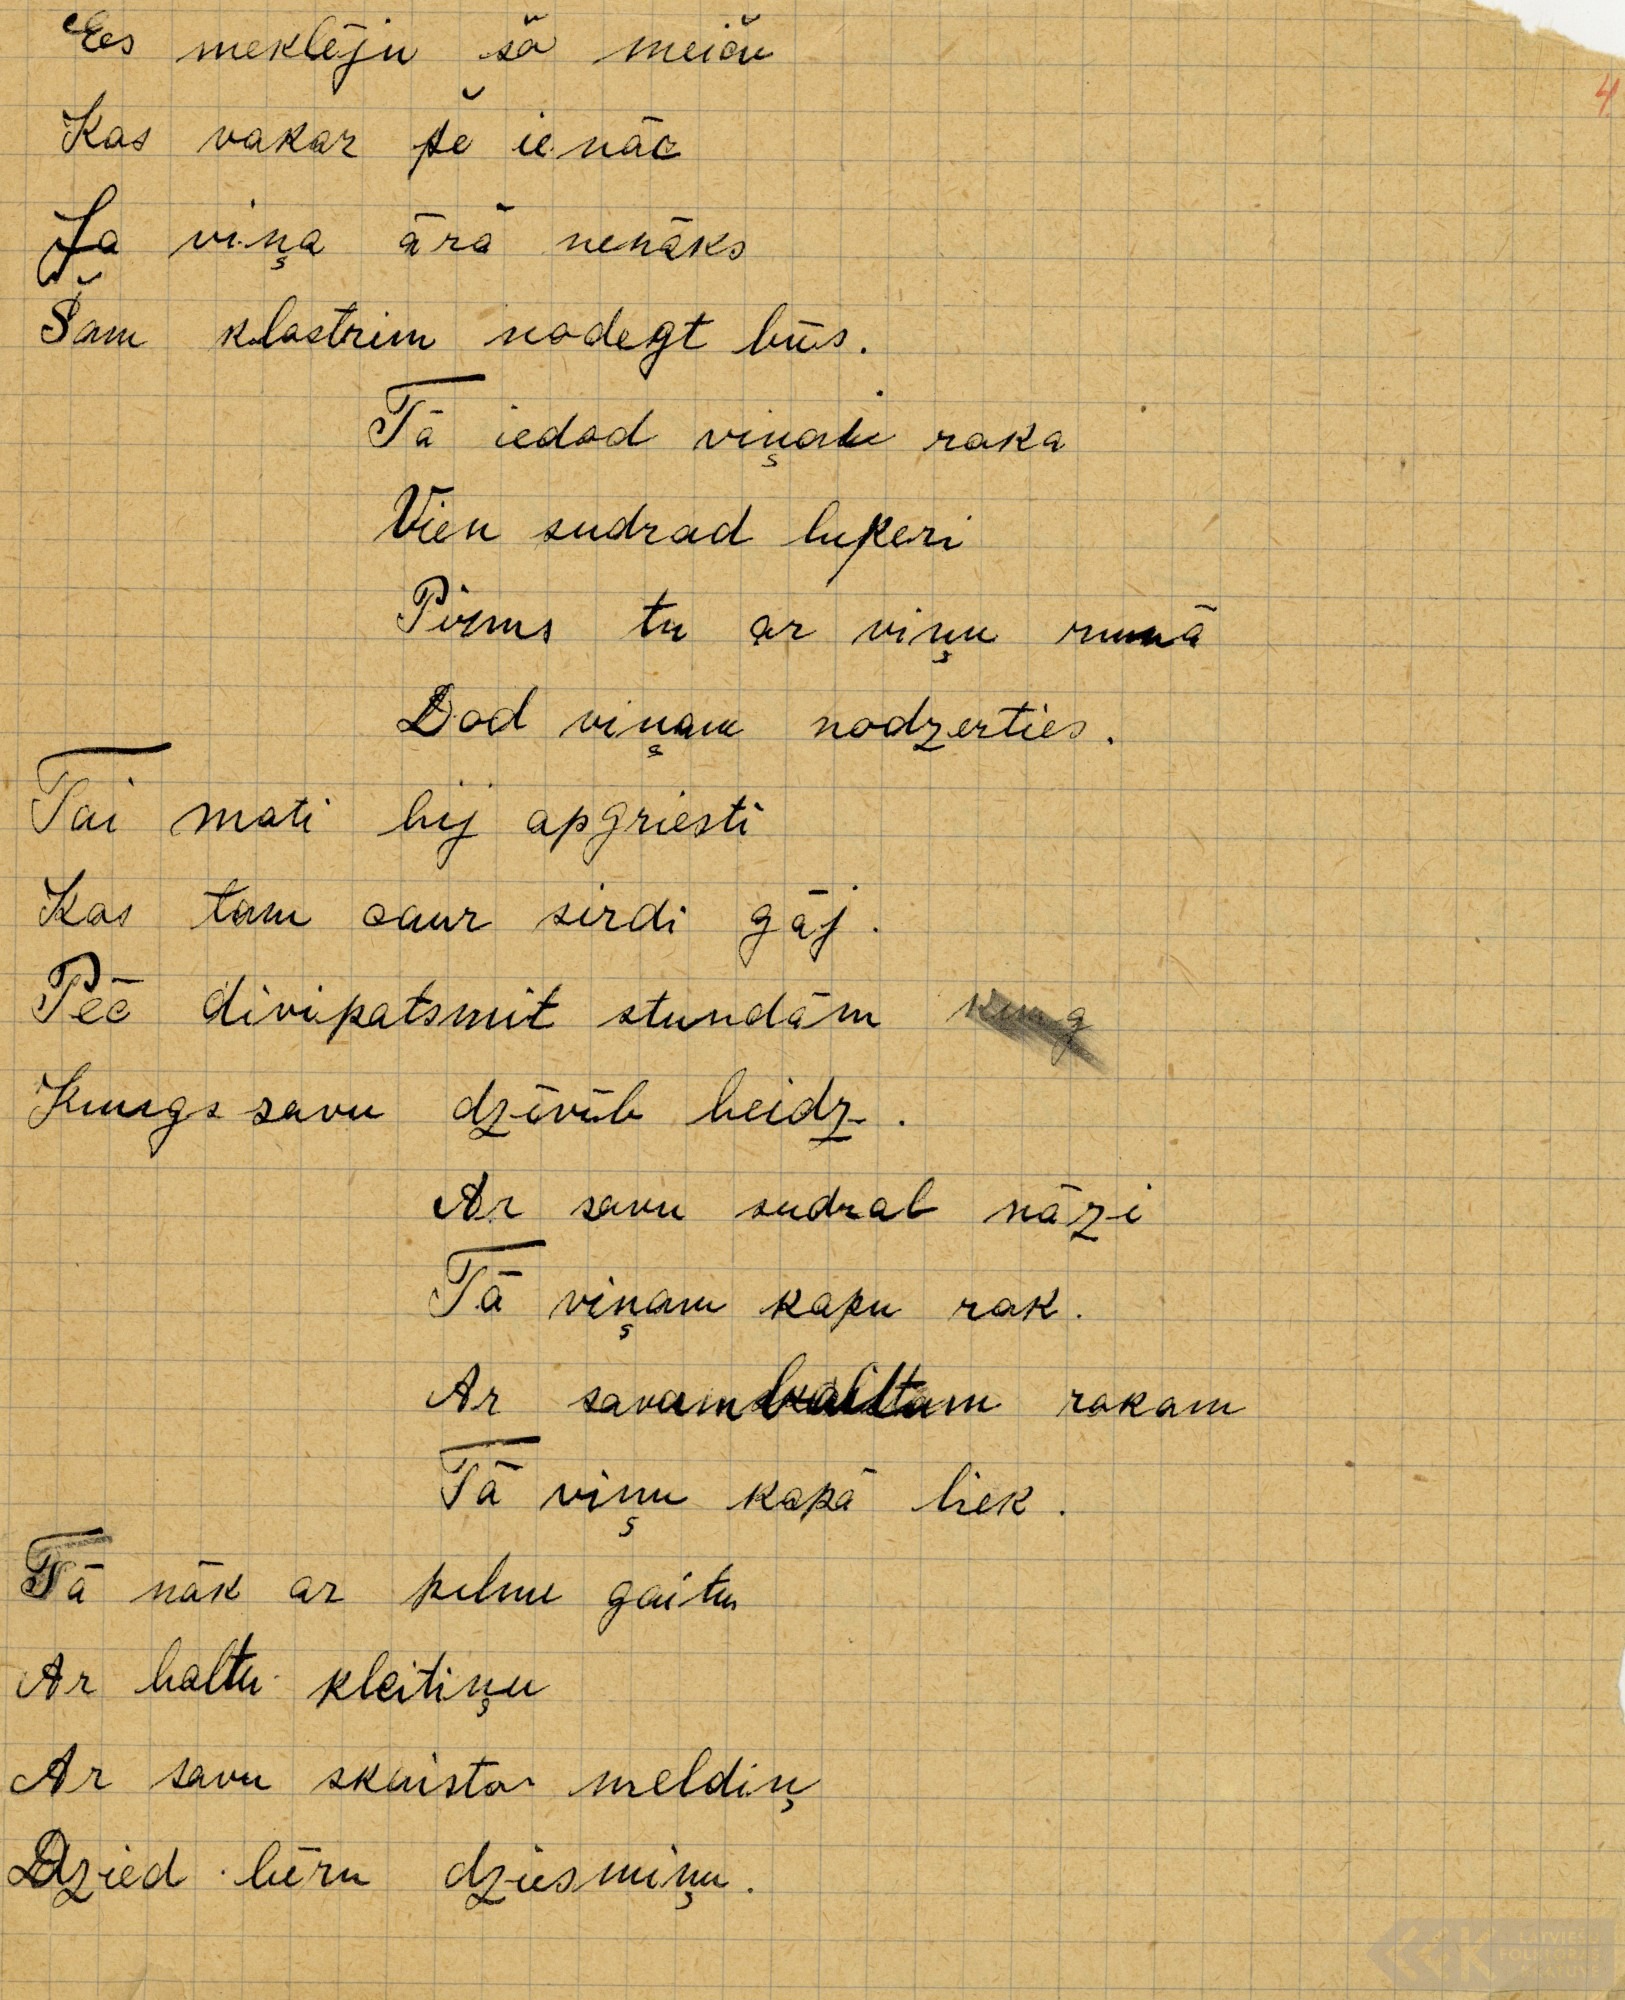 4
Es meklēju šo meiču
Kas vakar še ienāc
Ja viņa ārā nenāks
Šam klostrim nodegt būs.
Tā iedod viņai roka
Vien sudrad bikeri
Pirms tu ar viņu runā
Dod viņam nodzerties.
Tai mati bij apgriesti
Kas tam caur sirdi gāj.
Pēc divipatsmit stundām
Kungs savu dzīvīb beidz.
Ar savu sudrab nāzi
Tā viņam kapu rok.
Ar savam baltam rokam
Tā viņu kapā liek.
Tā nāk ar pilnu gaitu
Ar baltu kleitiņu
Ar savu skaisto meldiņ
Dzied bēru dziesmiņu.
LATVIEŠU FOLKLORAS KRĀTUVE